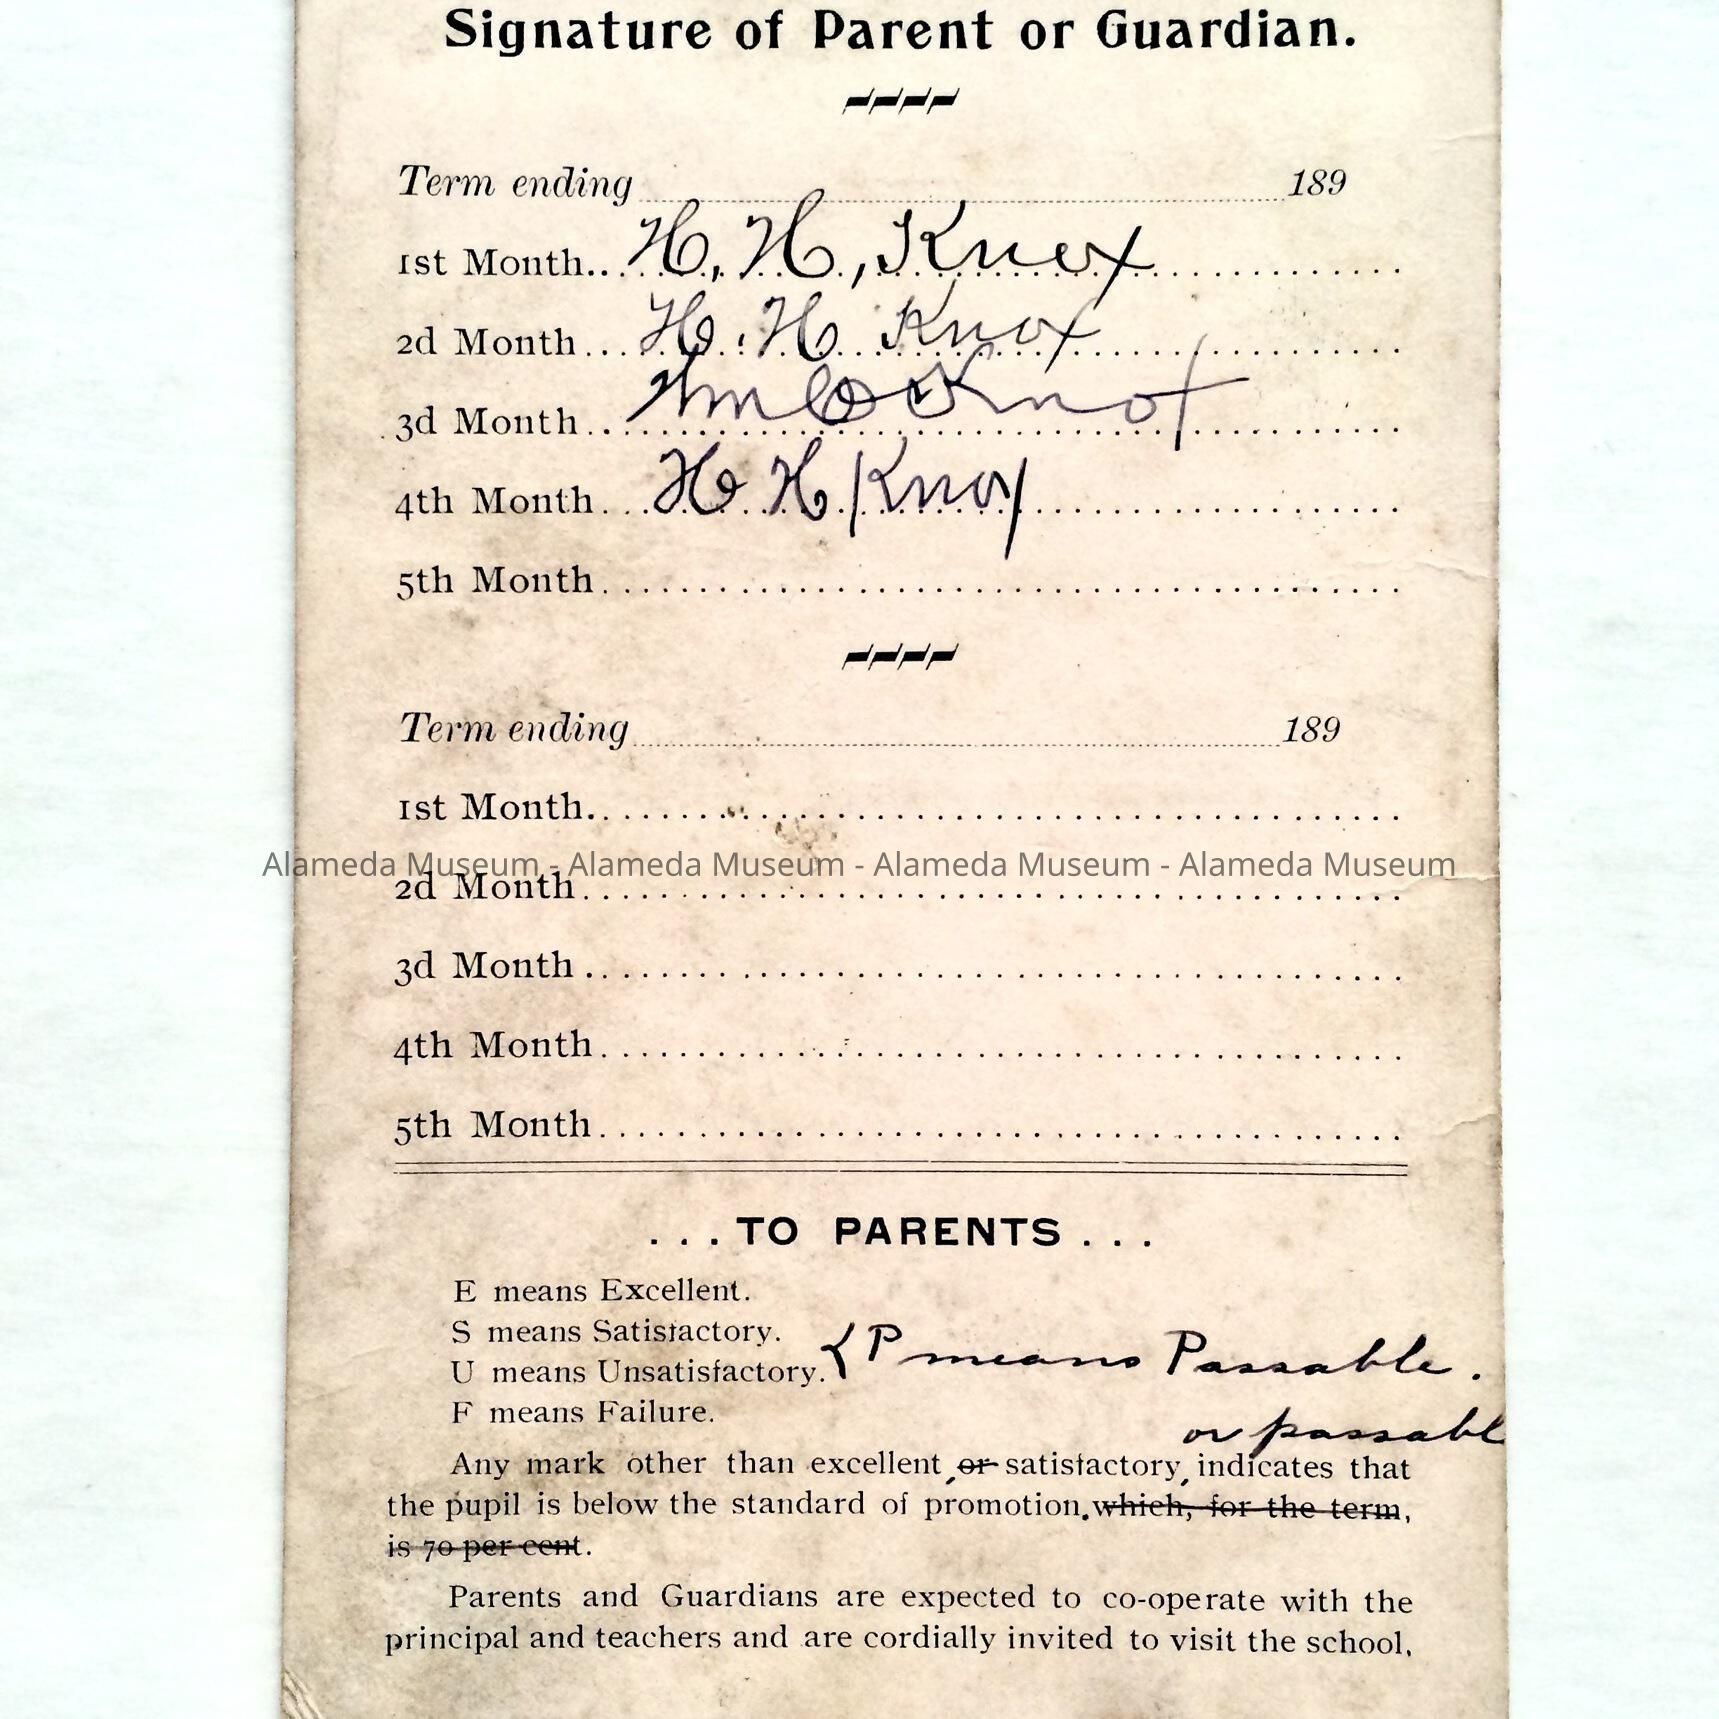 Signature of Parent or Guardian.
Term ending 189
1st Month... H, H, Knox
2d Month... H. H Knox
3d Month... Wm Knox
4th Month... H H Knox
5th Month
Term ending 189
1st Month
2d Month
Alameda Museum - Alameda Museum - Alameda Museum - Alameda Museum
3d Month
4th Month
5th Month
...TO PARENTS...
E means Excellent.
S means Satisfactory.
{P means Passable.
U means Unsatisfactory.
F means Failure.
or passabl
Any mark other than excellent, or satisfactory, indicates that
the pupil is below the standard of promotion. which, for the term,
is 70 per cent.
Parents and Guardians are expected to co-operate with the
principal and teachers and are cordially invited to visit the school.